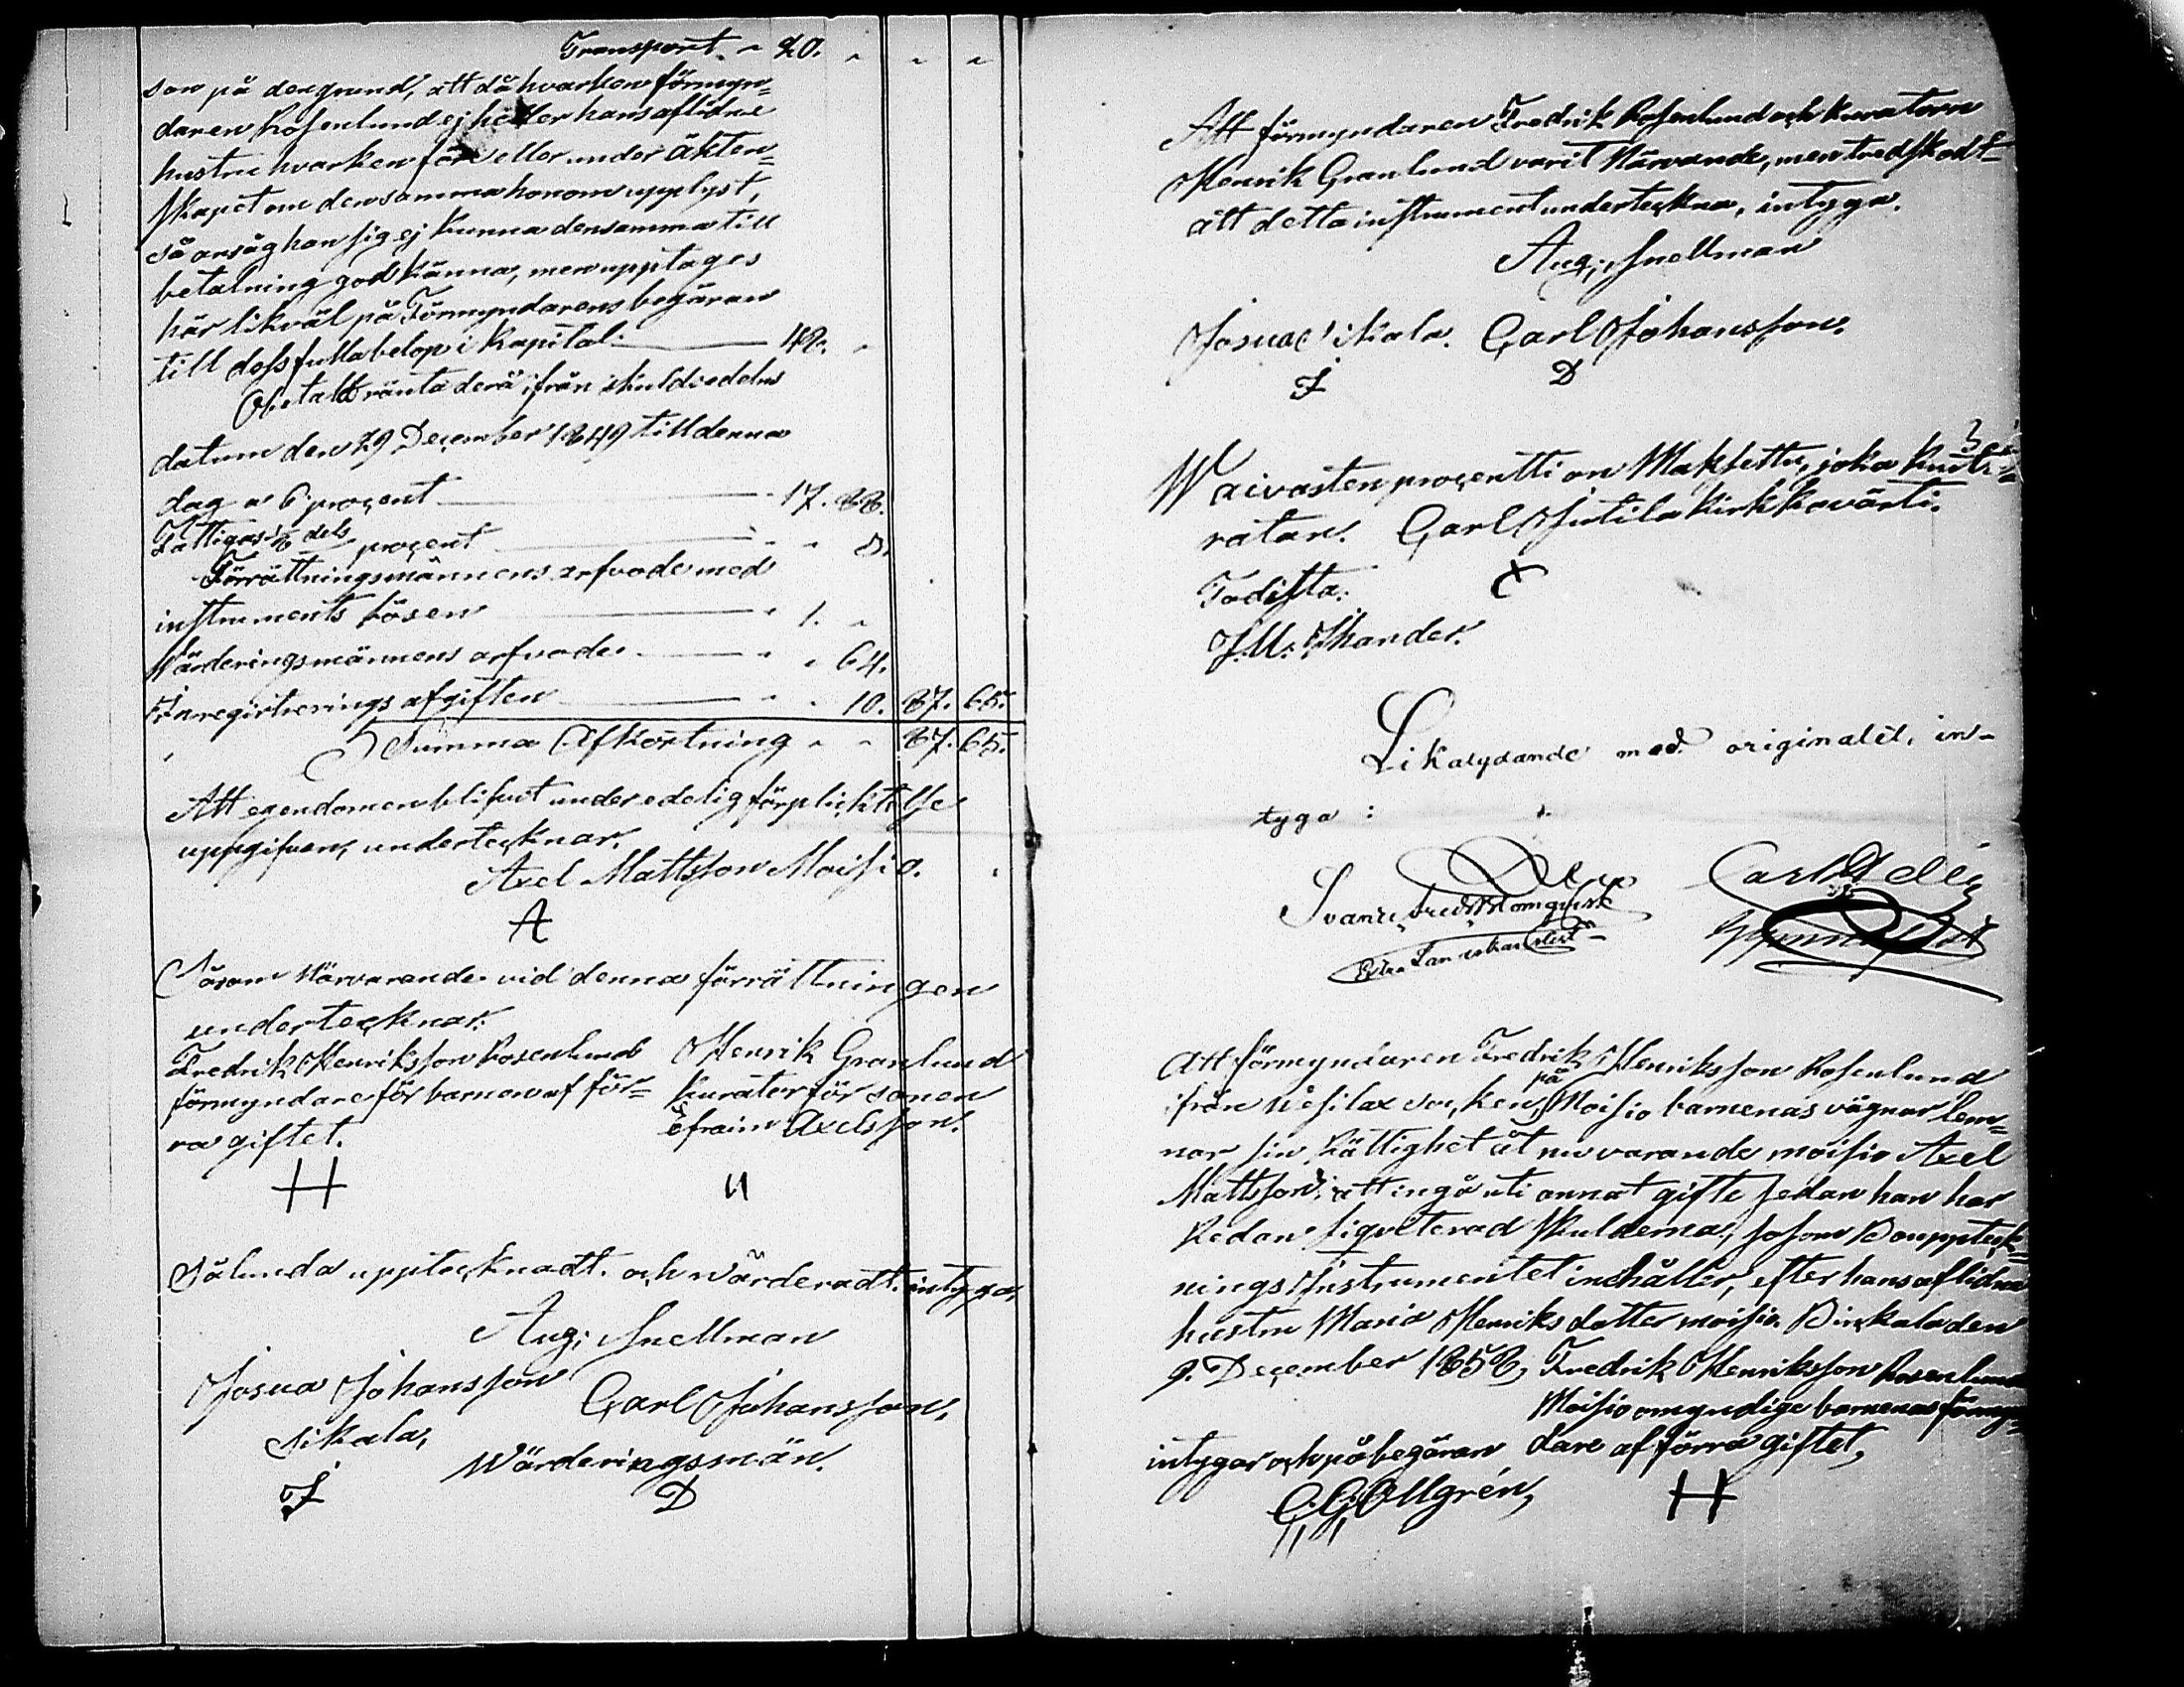 Transport " 20. " " "
son på den grund, att då hvarken förmyn=
daren Rosenlund ej heller hans aflidne
hustru hvarken före eller under äkten=
skapet om densamma honom upplyst,
så ansåg han sig ej kunna densamma till
betalning godkänna, men upptages
här likväl på Förmyndarens begäran
till dess fulla belop i Kapital. 48. "
Obetald ränta derå ifrån skuldsedelns
datum den 29 December 1849 till denna
dag a 6 procent 17. 88.
Fattigas 1/8 dels procent " " 8.
Förrättningsmännens arfvode med
instruments lösen " 1. "
Wärderingsmännens arfvode " " 64.
Inregistrerings afgiften " " 10. 87. 65.
Summa Afkortning " " 87. 65.
Att egendomen blifvit under edelig förplicktelse
uppgifven, undertecknar.
Axel Mattsson Moisio.
A
Såsom Närvarande vid denna förrättningen
undertecknar.
Fredrik Henriksson Rosenlund Henrik Granlund
förmyndare för barnen af för= Kurator för sonen
ra giftet. Efraim Axelsson.
H И
Sålunda upptecknadt. och wärderadt. intyga,
Aug; Snellman
Josua Johansson Carl Johansson,
Sikala,
Wärderingsmän.
I D
Att förmyndaren Fredrik Rosenlund och kuratorn
Henrik Granlund varit Närvande, men tredskodt
att detta instrument underteckna, intyga.
Aug; Snellman
Josua Sikala. Carl Johansson.
I D
Waivasten procentti on Maksettu, joka kuiti=
ratan. Carl Jutila Kirkkovärti.
Todista: X
J.M. Ithander.
Likalydande med originalet, in-
tyga :
Svante Fredr Blomqvist Carl
Att förmyndaren Fredrik Henriksson Rosenlund
ifrån Wesilax socken, på Moisio barnenas vägnar lem=
nar sin Rättighet åt nu varande moisio Axel
Mattsson, att ingå uti annat gifte sedan han har
Redan liqviterad skulderna, såsom Bouppteck=
nings Instrumentet inehåller, efter hans aflidna
hustru Maria Henriks dotter moisio. Birkala den
9. December 1858, Fredrik Henriksson Rosenlund
Moisio omyndige barnenas förmyn=
intygar och på begäran dare af förra giftet,
C. G. Ollgrén, H